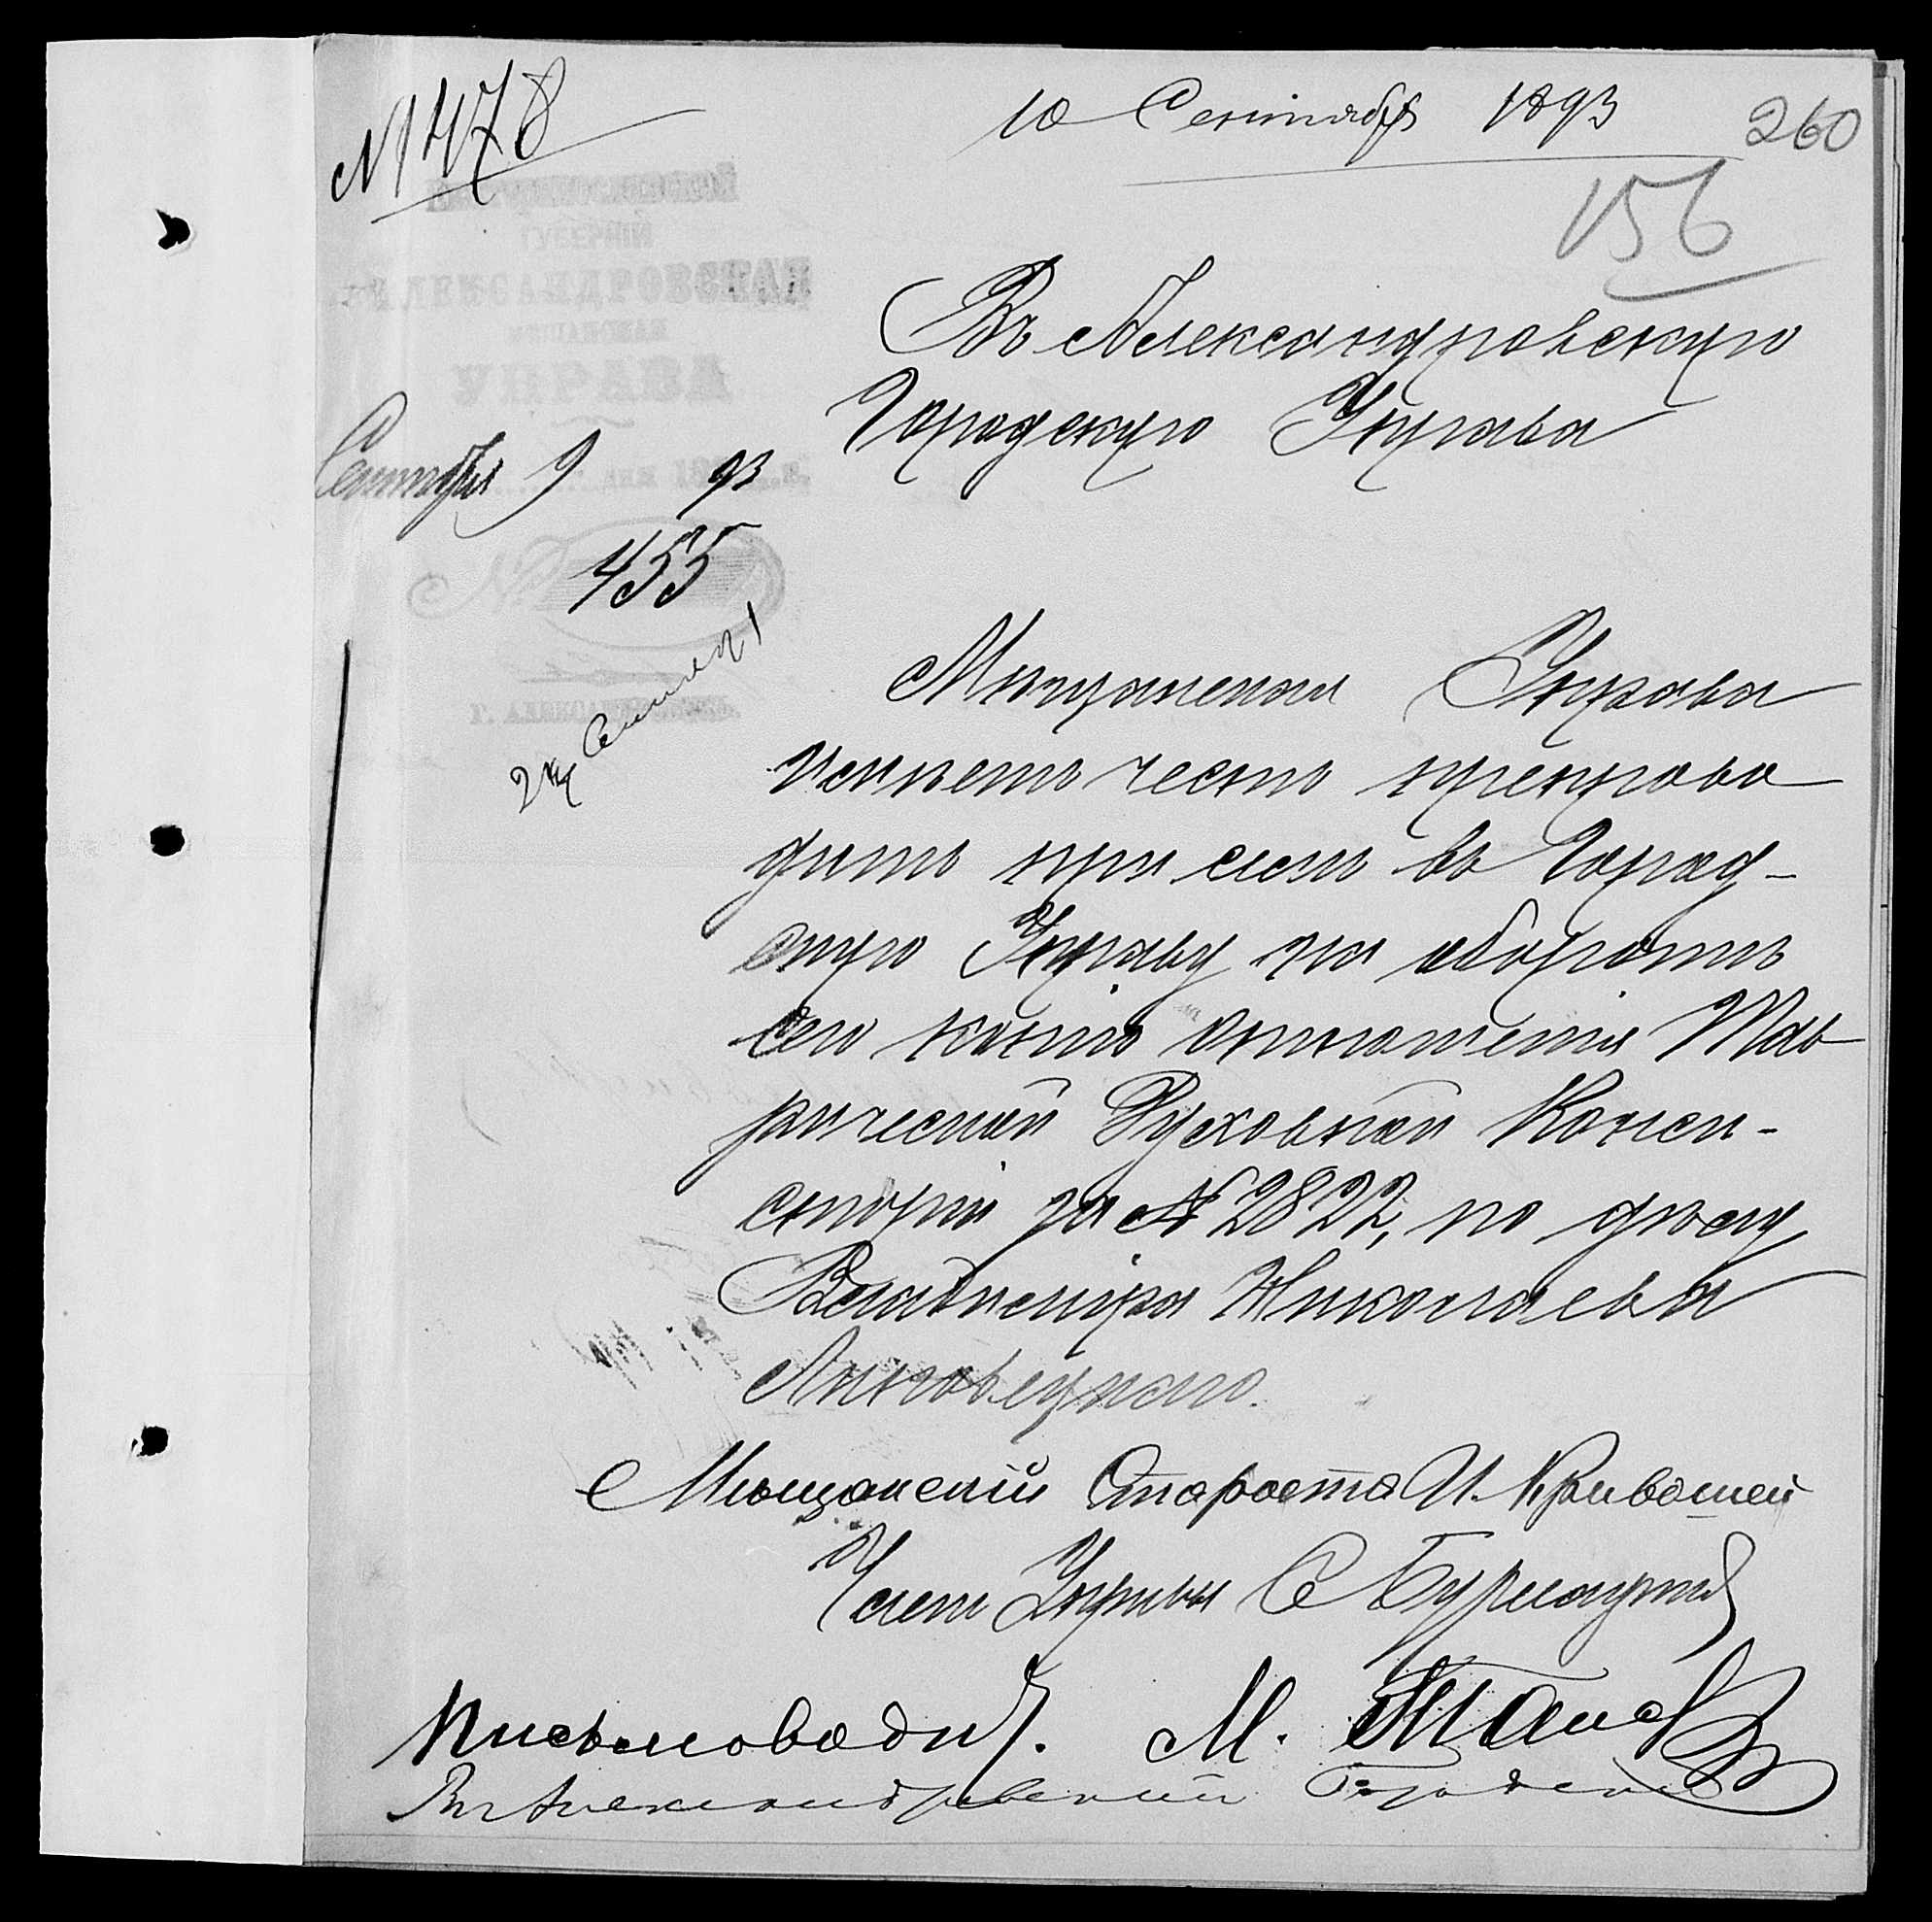 № 1478
10 Сентября 1893
260
156
ЕКАТЕРИНОСЛАВСКОЙ
ГУБЕРНІИ
АЛЕКСАНДРОВСКАЯ
МѢЩАНСКАЯ
УПРАВА
Сентября 9 дня 1893 г.
№ 455
г. АЛЕКСАНДРОВСКЪ.
Въ Александровскую
Городскую Управу
Мѣщанская Управа
имѣетъ честь препрово
дить при семъ въ Город-
скую Управу на оборотѣ
сего копію отношенія Тав
рической Духовной Конси-
сторіи за № 2822, по дѣлу
Владиміра Николаева
Мѣщанскій Староста И. Кривошей
Член Управы С
Письмоводит. М.
Въ Александровскій Городск